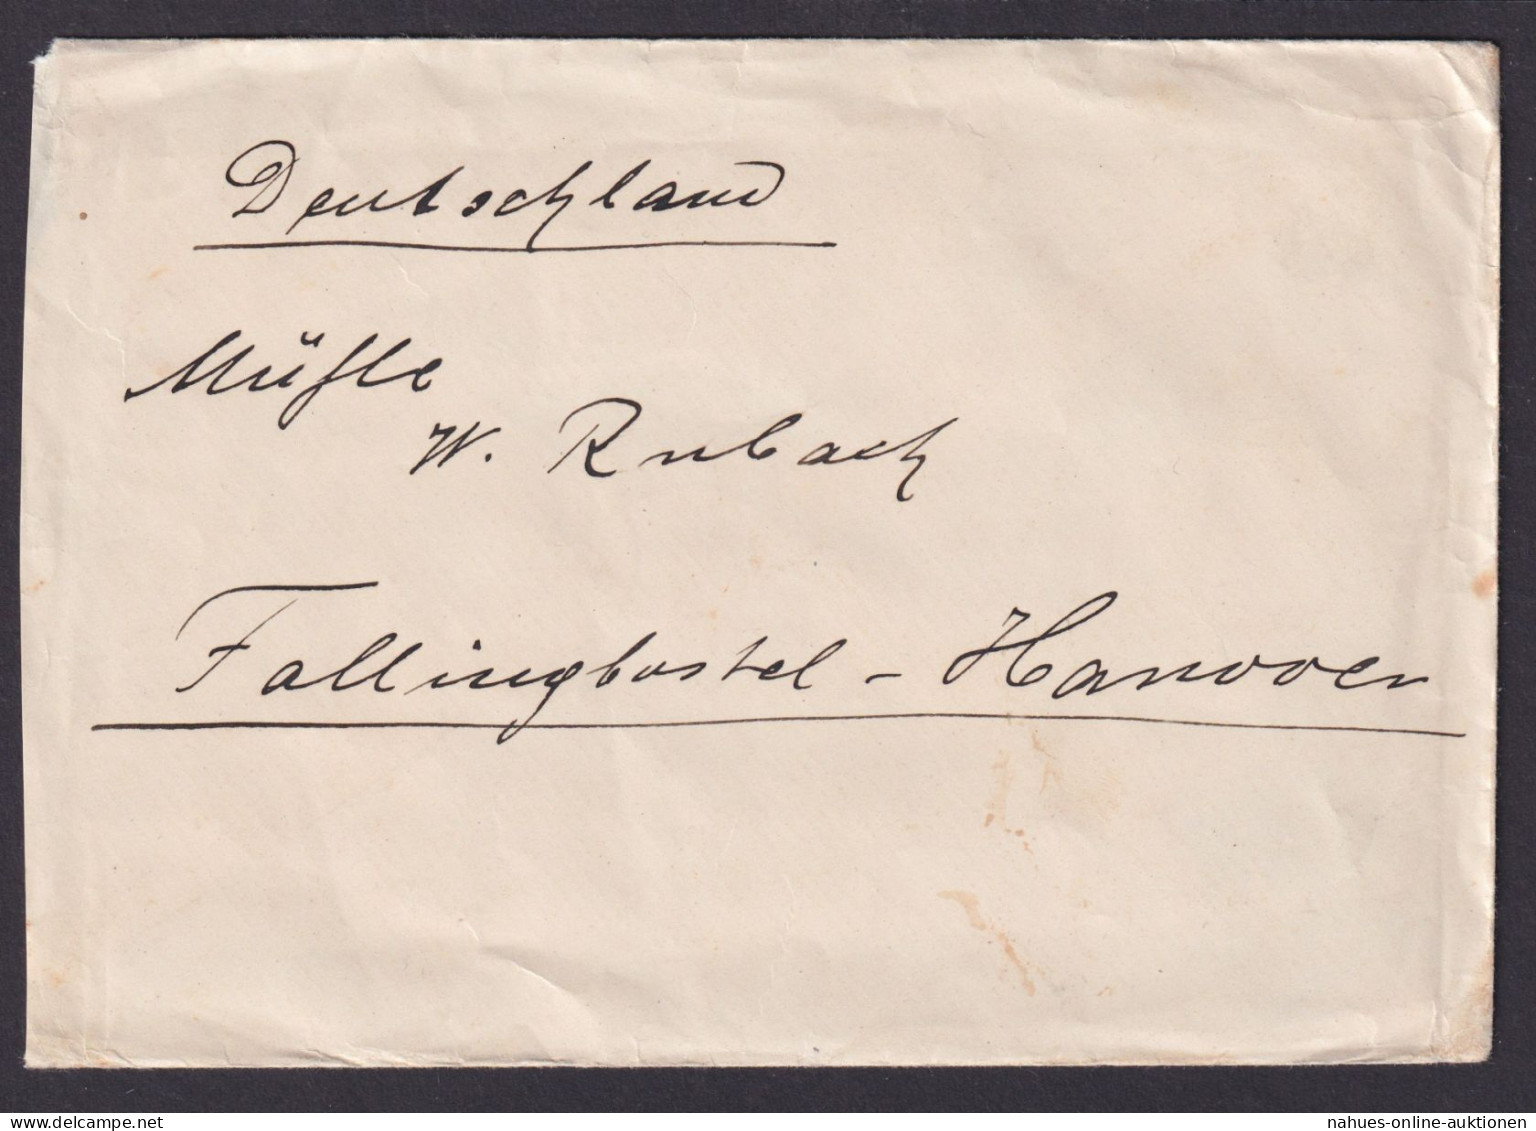 Deutschland
Mühle
W. Rubach
Fallingbostel - Hanover
nahues-online-auktionen